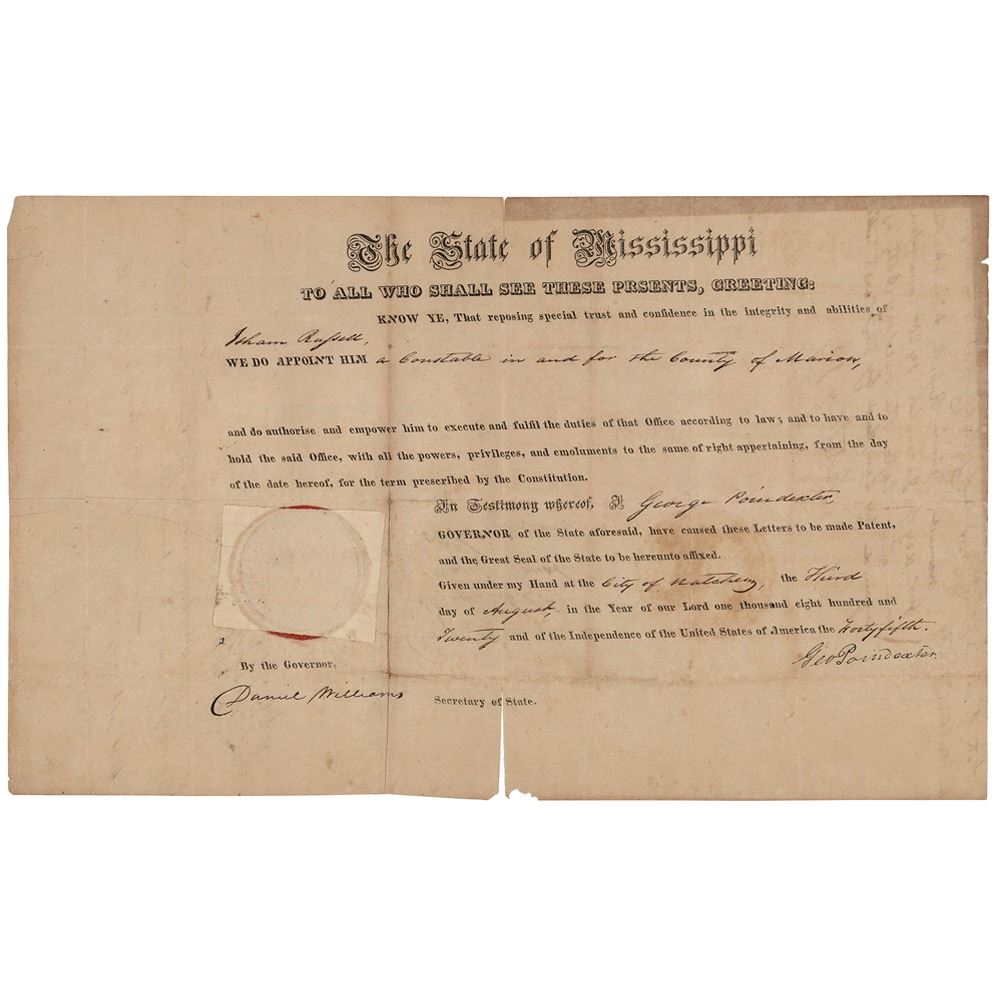 The State of Mississippi
TO ALL WHO SHALL SEE THESE PRSENTS, GREETING:
KNOW YE, That reposing special trust and confidence in the integrity and abilities of
Isham Russell,
WE DO APPOINT HIM a Constable in and for the County of Marion,
and do authorise and empower him to execute and fulfil the duties of that Office according to law; and to have and to
hold the said Office, with all the powers, privileges, and emoluments to the same of right appertaining, from the day
of the date hereof, for the term prescribed by the Constitution.
In Testimony whereof, I George Poindexter,
GOVERNOR of the State aforesaid, have caused these Letters to be made Patent,
and the Great Seal of the State to be hereunto affixed.
Given under my Hand at the City of Natchez, the Third
day of August, in the Year of our Lord one thousand eight hundred and
Twenty and of the Independence of the United States of America the Fortyfifth.
Geo Poindexter
By the Governor,
Daniel Williams Secretary of State.